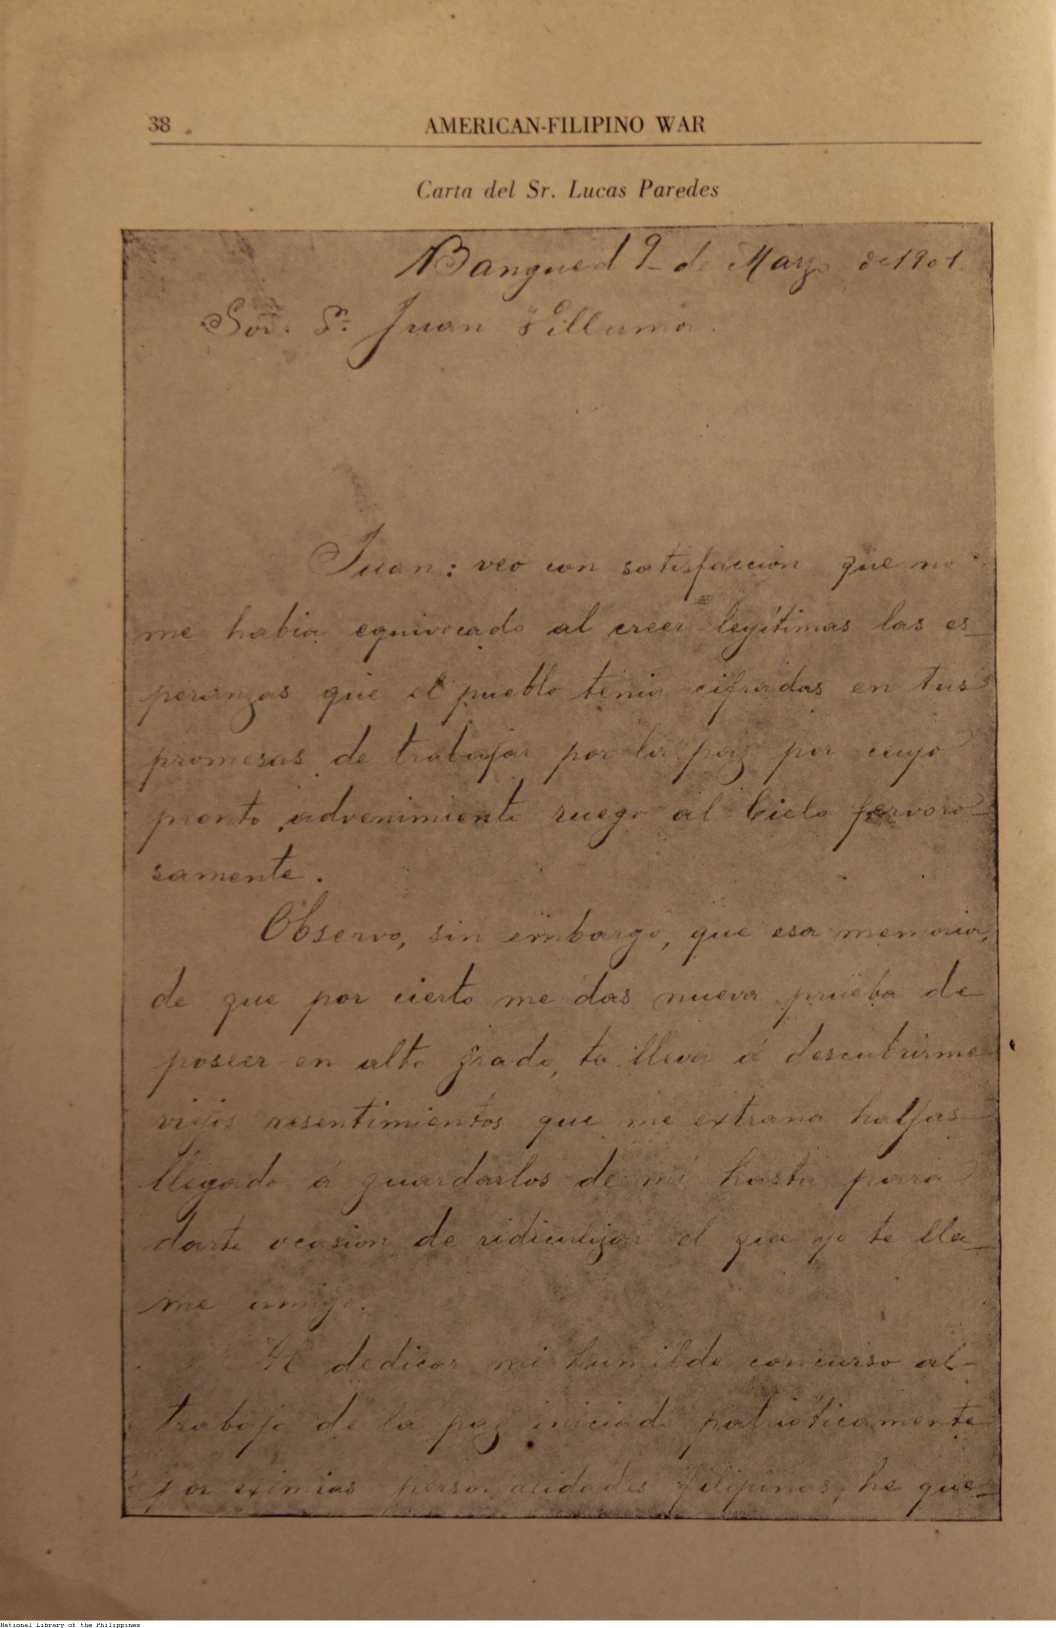 38
AMERICAN-FILIPINO WAR
Carta del Sr. Lucas Paredes
Bangued 9 de Marzo de 1901.
Sor. Sr. Juan Villamor.
Juan: veo con satisfaccion que no
me habia equivocado al creer legítimas las es-
peranzas que el pueblo tenia cifradas en tus
promesas de trabajar por la paz por cuyo
pronto advenimiento ruego al Cielo fervoro-
samente.
Observo, sin embargo, que esa memoria,
de que por cierto me das nueva prueba de
poseer en alto grado, te lleva á descubrirme
viejos resentimientos que me extraña hallas
llegado á guardarlos de mí hasta para
darte ocasion de ridiculizar el que yo te lla-
me amigo.
Al dedicar mi humilde concurso al
trabajo de la paz iniciado patrioticamente
por eximias personalidades filipinas, he que-
National Library of the Philippines